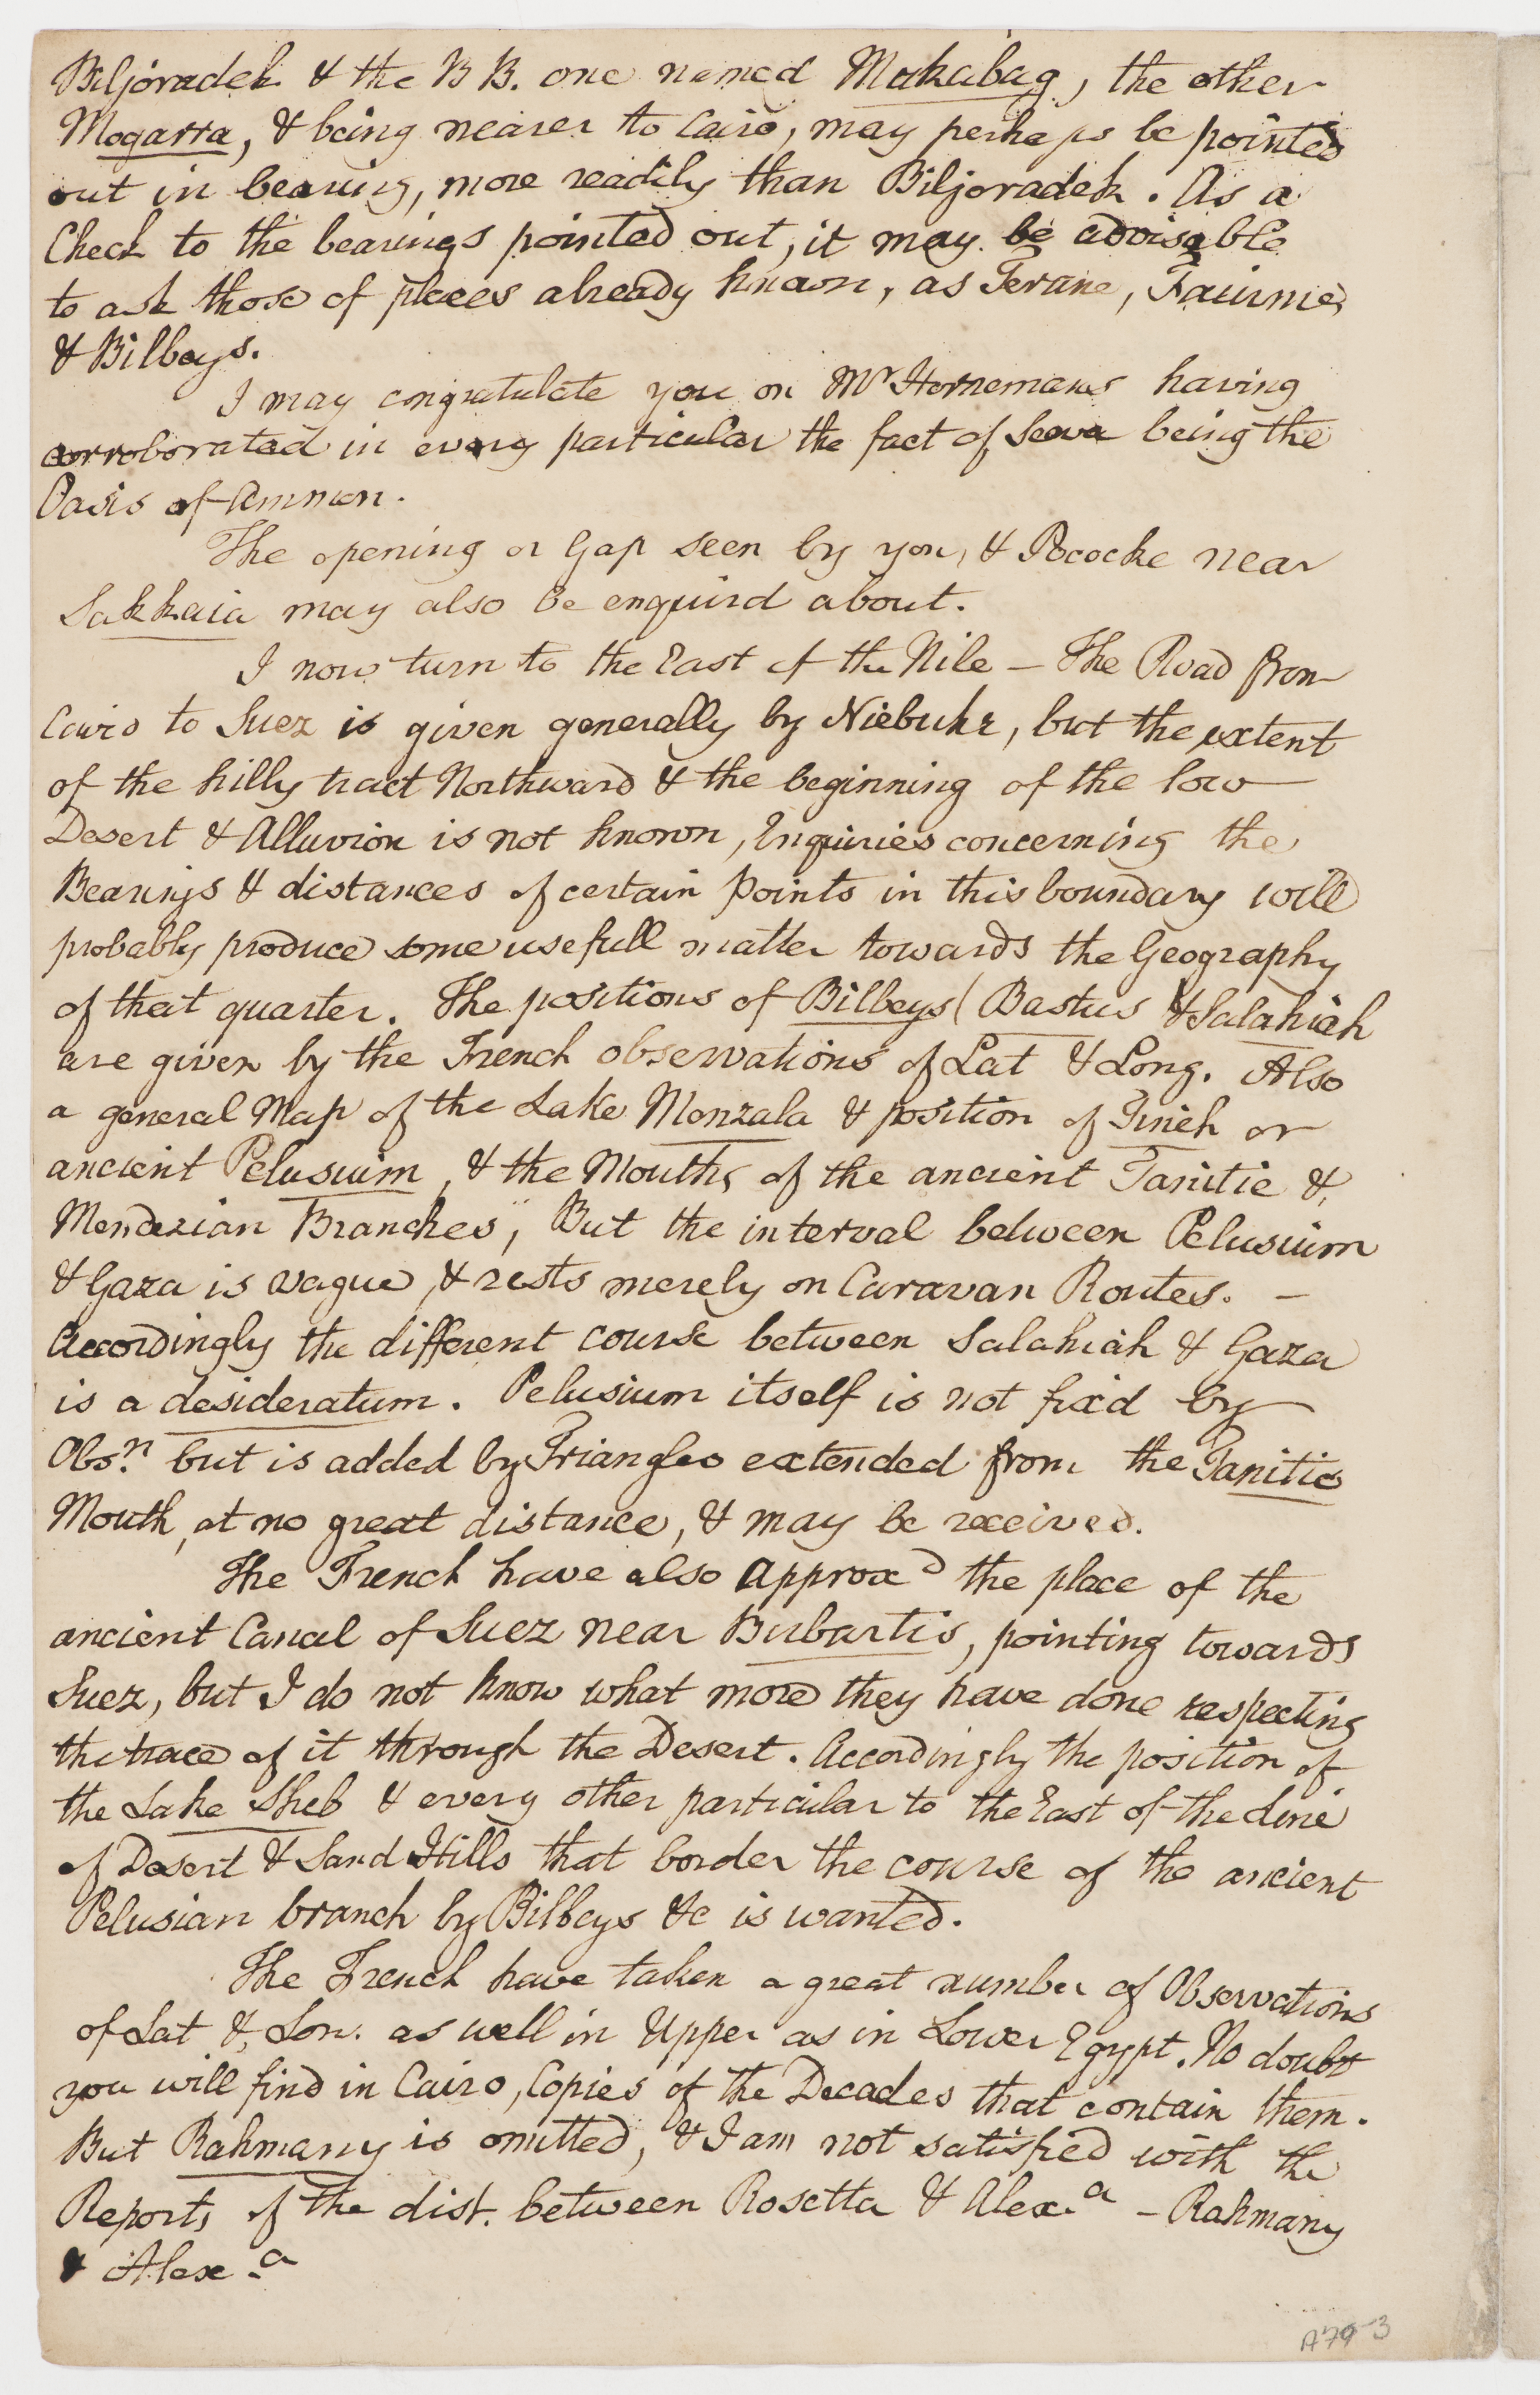 Biljoradek & the B B. one named Makabag, the other
Mogarra, & being nearer to Cairo, may perhaps be pointed
out in bearing, more readily than Biljoradek. As a
Check to the bearings pointed out, it may be advisable
to ask those of places already known, as Terane, Faiume,
& Bilbays.
I may congratulate you on Mr Hornemans having
corroborated in every particular the fact of Seewa being the
Oasis of Ammon.
The opening or Gap seen by you, & Pococke near
Sakkaia may also be enquird about.
I now turn to the East of the Nile – The Road from
Cairo to Suez is given generally by Niebuhr, but the extent
of the hilly tract Northward & the beginning of the low
Desert & Alluvion is not known, Enquiries concerning the
Bearings & distances of certain points in this boundary will
probably produce some usefull matter towards the Geography
of that quarter. The positions of Bilbeys (Bastus & Salahiah
are given by the French observations of Lat & Long. Also
a general Map of the Lake Menzala & position of Tineh or
ancient Pelusium, & the Mouths of the ancient Tanitic &
Mendezian Branches, But the interval between Pelusium
& Gaza is vague, & rests merely on Caravan Routes. –
Accordingly the different course between Salahiah & Gaza
is a desideratum. Pelusium itself is not fix'd by
Obs.n but is added by Triangles extended from the Tanitic
Mouth, at no great distance, & may be received.
The French have also approxd the place of the
ancient Canal of Suez near Bubartis, pointing towards
Suez, but I do not know what more they have done respecting
the trace of it through the Desert. Accordingly the position of
the Lake Sheb & every other particular to the East of the line
of Desert & Sand Hills that border the course of the ancient
Pelusian branch by Bilbeys &c is wanted.
The French have taken a great number of Observations
of Lat & Lon. as well in Upper as in Lower Egypt. No doubt
you will find in Cairo, Copies of the Decades that contain them.
But Rahmany is omitted, & I am not satisfied with the
Reports of the dist. between Rosetta & Alex.a – Rahmany
& Alex.a
A79-3